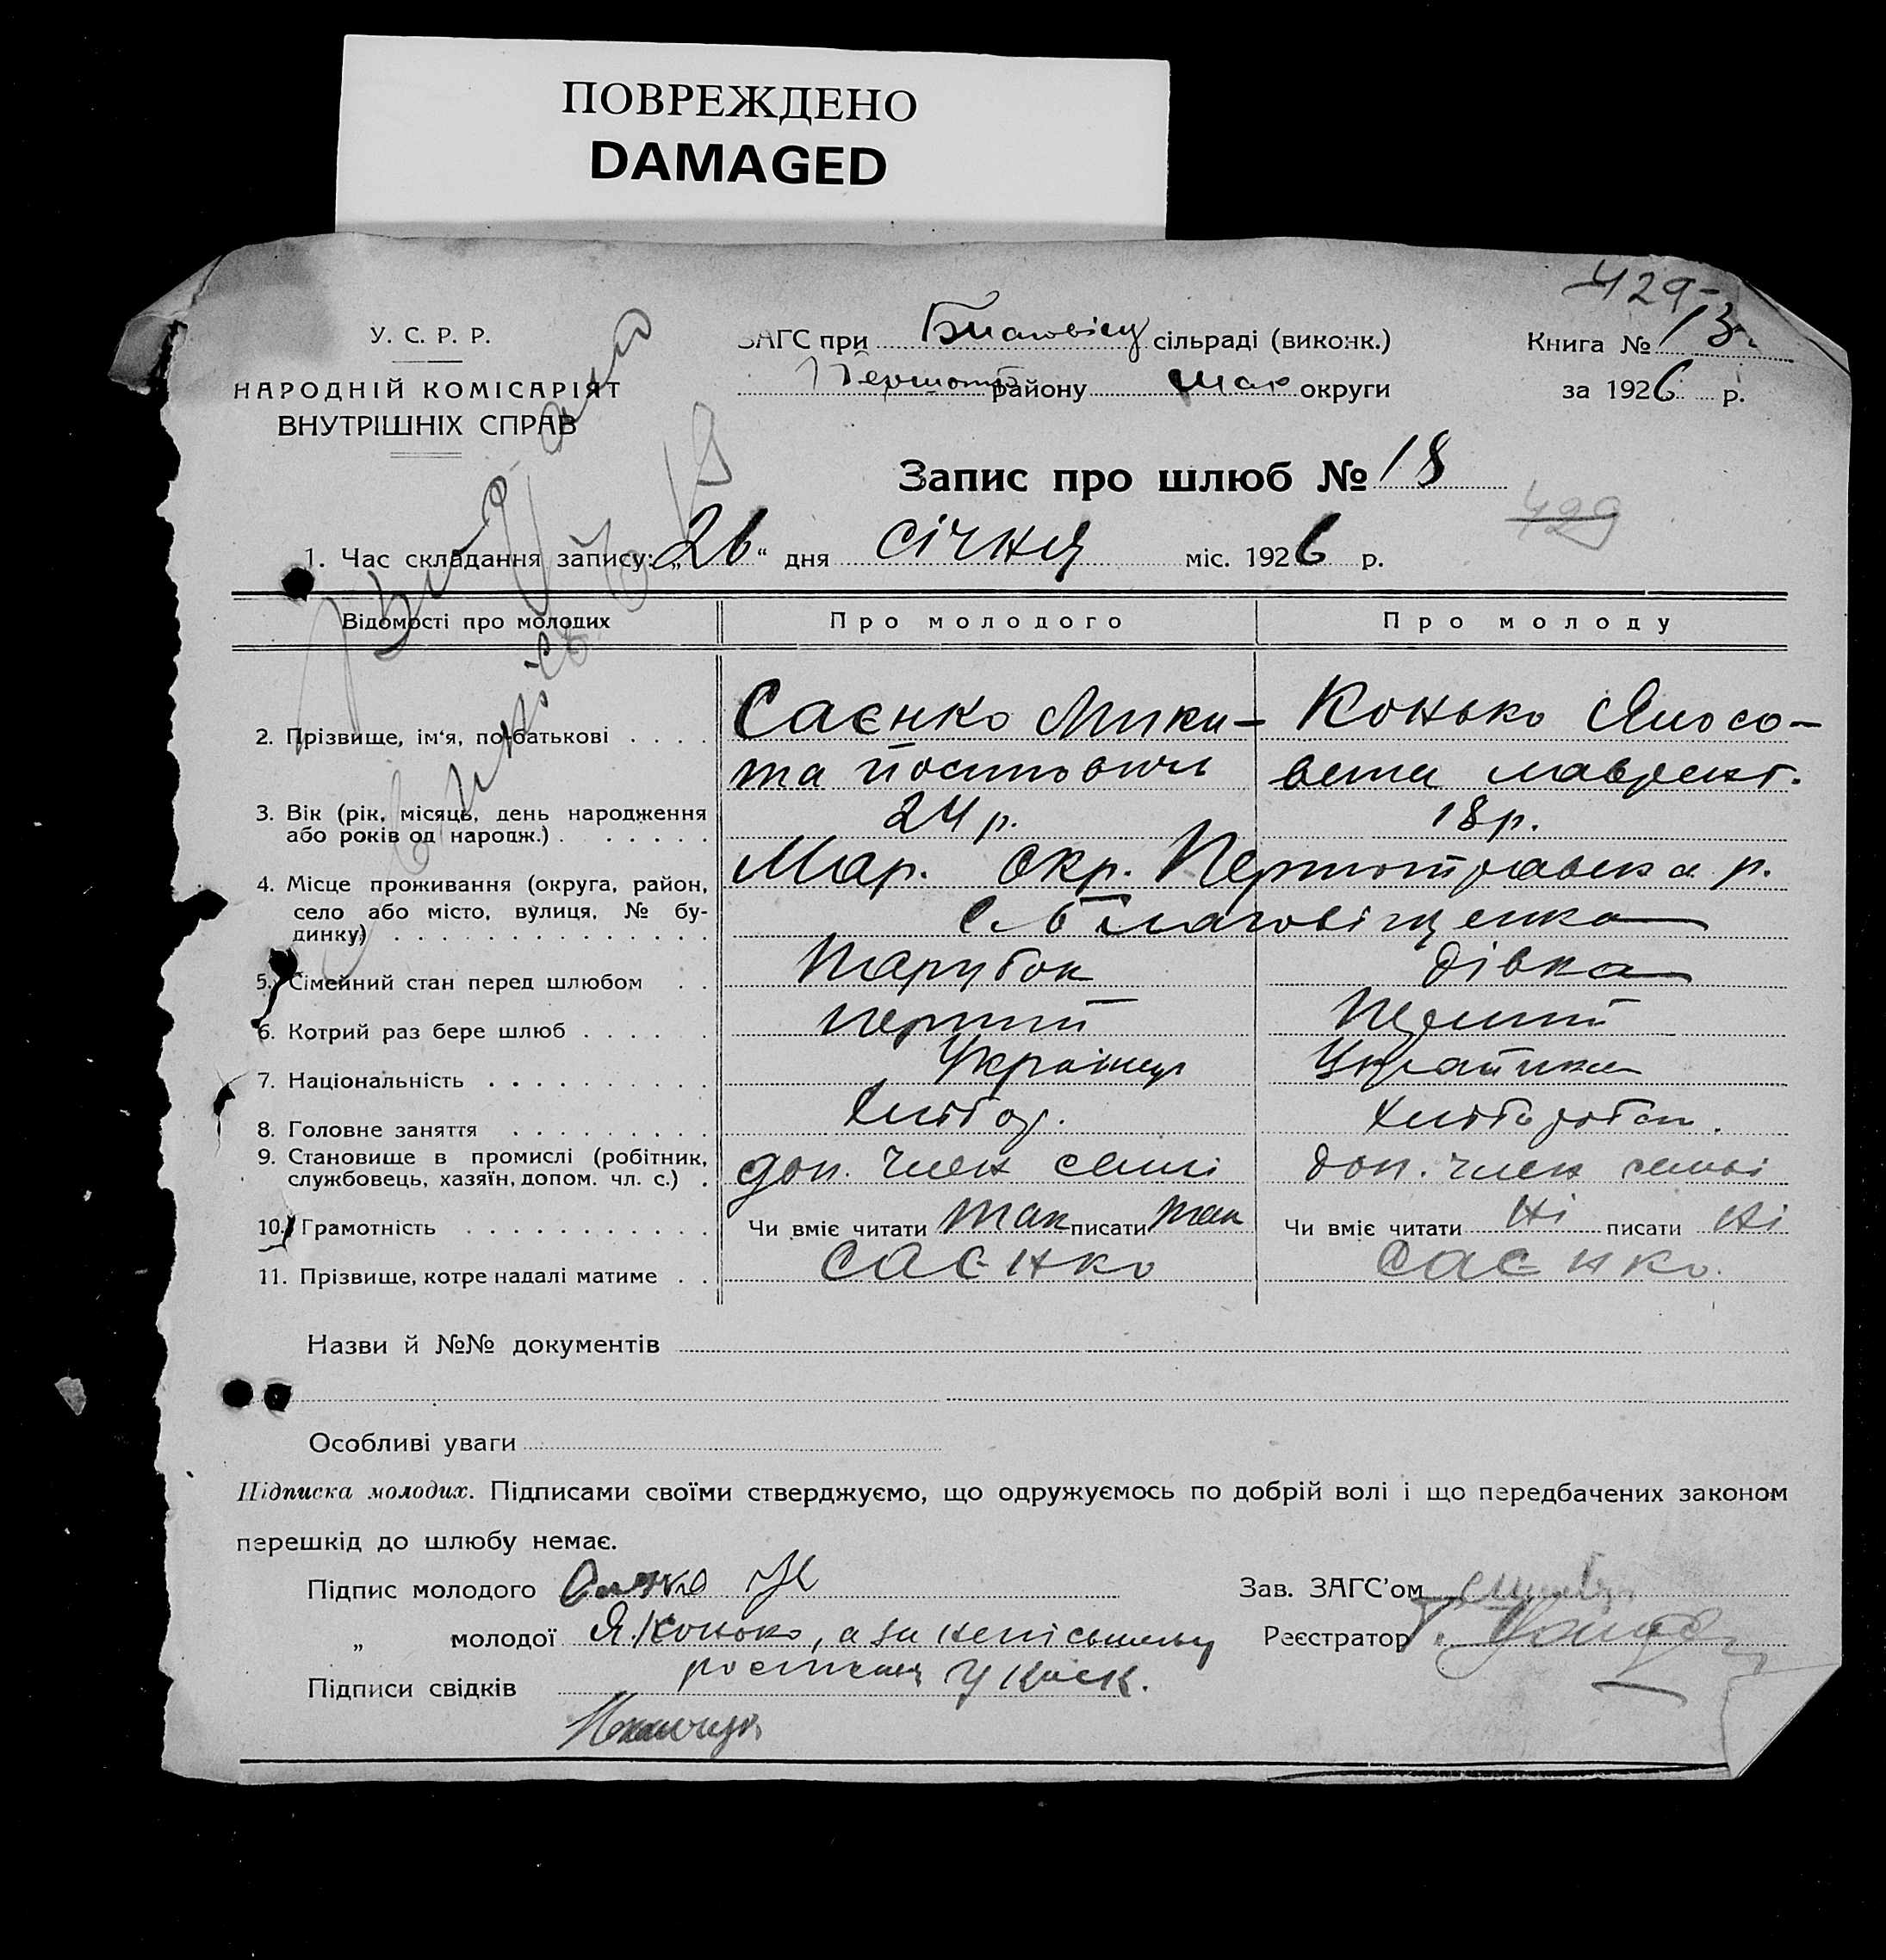 ПОВРЕЖДЕНО
DAMAGED
429-
У. С. Р. Р.
НАРОДНІЙ КОМІСАРІЯТ
ВНУТРІШНІХ СПРАВ
ЗАГС при Благовіщ сільраді (виконк.)
району округи
Книга № 13
за 1926 р.
Запис про шлюб № 18
429
1. Час складання запису: „26“ дня січня міс. 1926 р.
Відомості про молодих
Про молодого
Про молоду
2. Прізвище, ім‘я, по-батькові . . . .
Саєнко Мики-
та Йосипович
Конько
Лаврент.
3. Вік (рік, місяць, день народження
або років од народж.) . . . . . .
24 р.
18 р.
4. Місце проживання (округа, район,
село або місто, вулиця, № бу-
динку) . . . . . . . . . . . . . .
Мар. Окр. Першотравска р.
с. Благовіщенка
5. Сімейний стан перед шлюбом . .
Парубок
дівка
6. Котрий раз бере шлюб . . . . . .
перший
Перший
7. Національність . . . . . . . . . .
Українец
Українка
8. Головне заняття . . . . . . . . .
Хлібор.
Хліборобка.
9. Становище в промислі (робітник,
службовець, хазяїн, допом. чл. с.) .
доп. член семі
доп. член семьі
10. Грамотність . . . . . . . . . . .
Чи вміє читати так писати так
Чи вміє читати Ні писати Ні
11. Прізвище, котре надалі матиме . .
Саєнко
Саєнко.
Назви й №№ документів
Особливі уваги
Підписка молодих. Підписами своїми стверджуємо, що одружуємось по добрій волі і що передбачених законом
перешкід до шлюбу немає.
Підпис молодого
Зав. ЗАГС’ом
„ молодої Я. Конько, а за неписьмену
Реєстратор
Підписи свідків